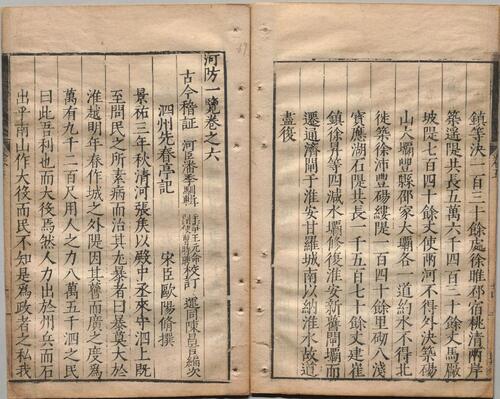 鎮等決一百三十餘處徐睢邳宿桃清兩岸
築遙隄共長五萬六千四百三十餘丈馬廠
坡隄七百四十餘丈使兩河不得外決築碭
山大壩豐縣邵家大壩各一道約水不得北
徙築徐沛豐碭縷隄一百四十餘里砌八淺
寶應湖石隄共長一千五百七十餘丈建崔
鎮徐昇等四減水壩修復淮安新舊閘壩而
遷通濟閘于淮安甘羅城南以納淮水故道
盡復
河防一覽卷之六
古今稽証 河臣潘季馴輯 校訂 運同陳昌言編次
泗州先春亭記 宋臣歐陽脩撰
景祐三年秋清河張矦以殿中丞來守泗上既
至問民之所素病而治其尤暴者曰暴莫大於
淮越明年春作城之外隄因其舊而廣之度為
萬有九千二百尺用人之力八萬五千泗之民
曰此吾利也而大役焉然人力出於州兵而石
出乎南山作大役而民不知是爲政者之私我